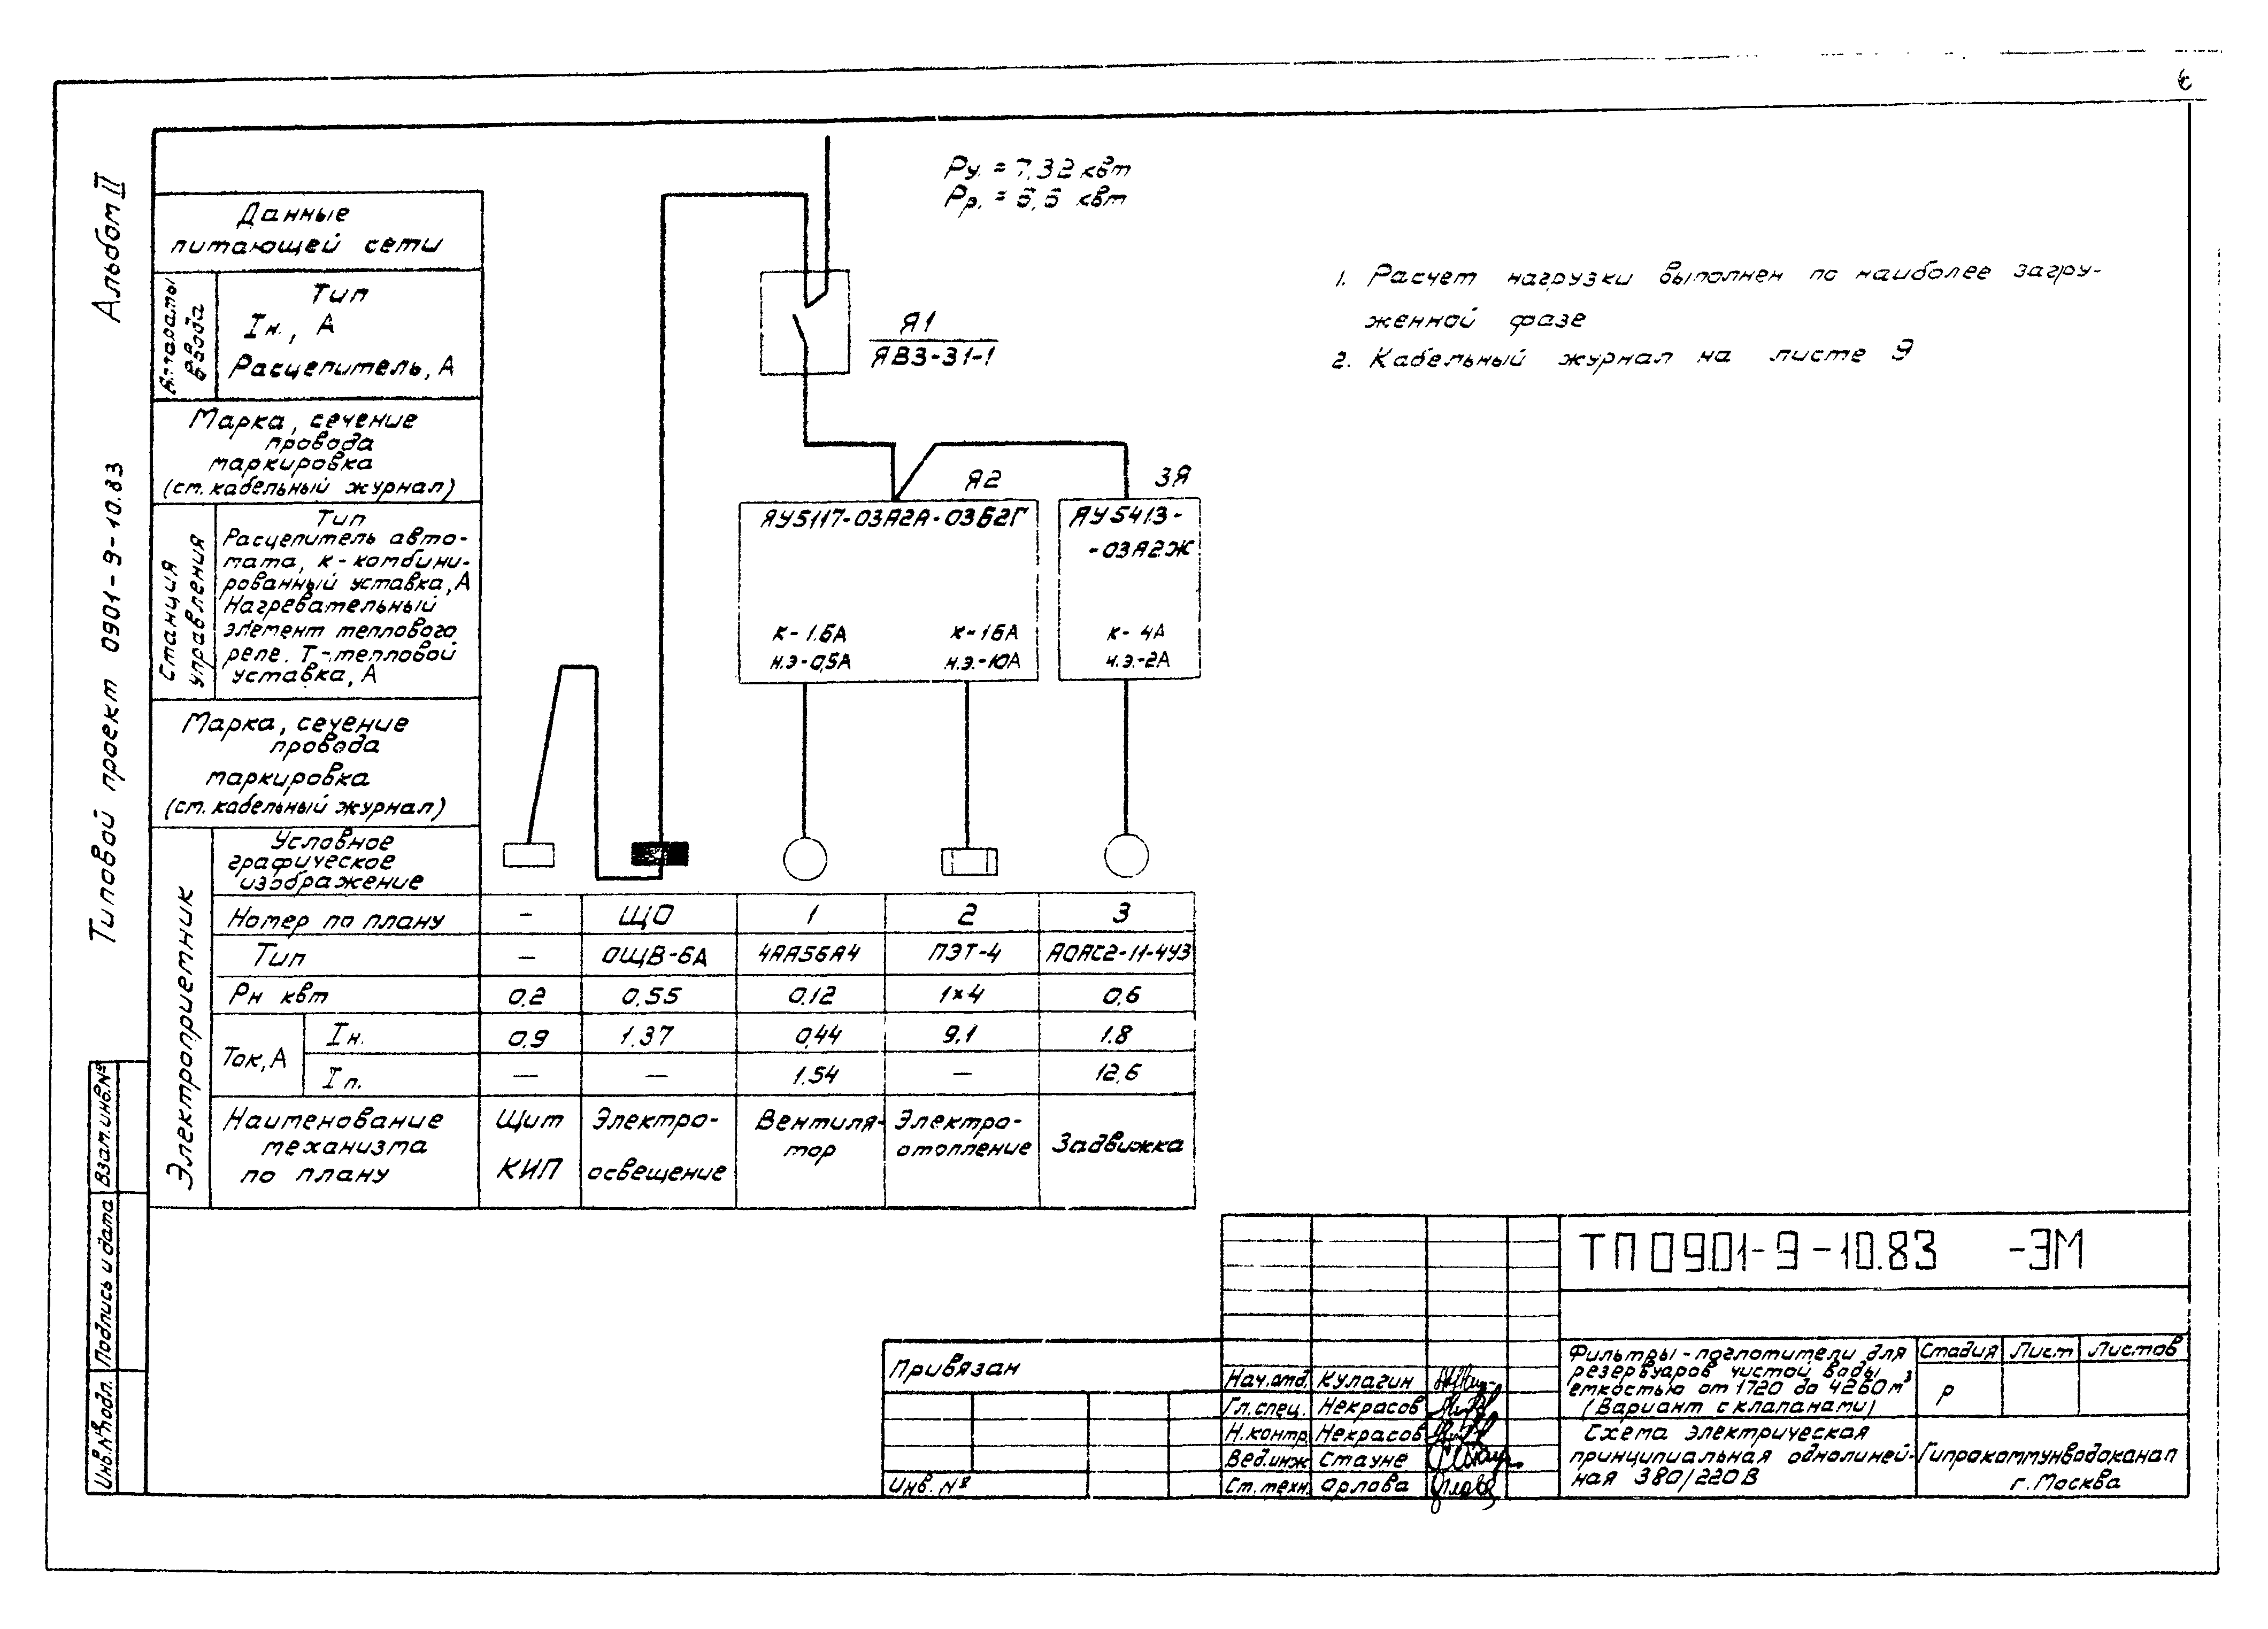 6
Альбом II
Типовой проект 0901-9-10.83
Ру. = 7,32 квт
Рр. = 6,6 квт
1. Расчет нагрузки выполнен по наиболее загру-
женной фазе
2. Кабельный журнал на листе 9
Данные
питающей сети
Аппараты
ввода
Тип
Iн., А
Расцепитель, А
Марка, сечение
провода
маркировка
(см. кабельный журнал)
Станция
управления
Тип
Расцепитель авто-
мата, к-комбини-
рованный уставка, А
Нагревательный
элемент теплового
реле. Т-тепловой
уставка, А
Марка, сечение
провода
маркировка
(см. кабельный журнал)
Я1
ЯВЗ-31-1
Я2
ЯУ5117-03А2А-03Б2Г
к-1.6А к-16А
н.э-0,5А н.э.-10А
3Я
ЯУ5413-
-03А2Ж
к-4А
н.э.-2А
Электроприемник
Условное
графическое
изображение
Номер по плану - ЩО 1 2 3
Тип - ОЩВ-6А 4АА56А4 ПЭТ-4 АОЛС2-11-4У3
Рн квт 0,2 0,55 0,12 1×4 0,6
Ток, А
Iн. 0,9 1.37 0,44 9,1 1.8
Iп. - - 1.54 - 12,6
Наименование
механизма
по плану
Щит
КИП
Электро-
освещение
Вентиля-
тор
Электро-
отопление
Задвижка
Взам.инв.№
Подпись и дата
Инв.№ подл.
Привязан
Инв. №
Нач.отд. Кулагин
Гл.спец. Некрасов
Н.контр. Некрасов
Вед.инж Стауне
Ст.техн. Орлова
ТП 0901-9-10.83 -ЭМ
Фильтры-поглотители для
резервуаров чистой воды
емкостью от 1720 до 4260 м³
(Вариант с клапанами)
Стадия Лист Листов
р
Схема электрическая
принципиальная однолиней-
ная 380/220 В
Гипрокоммунводоканал
г. Москва